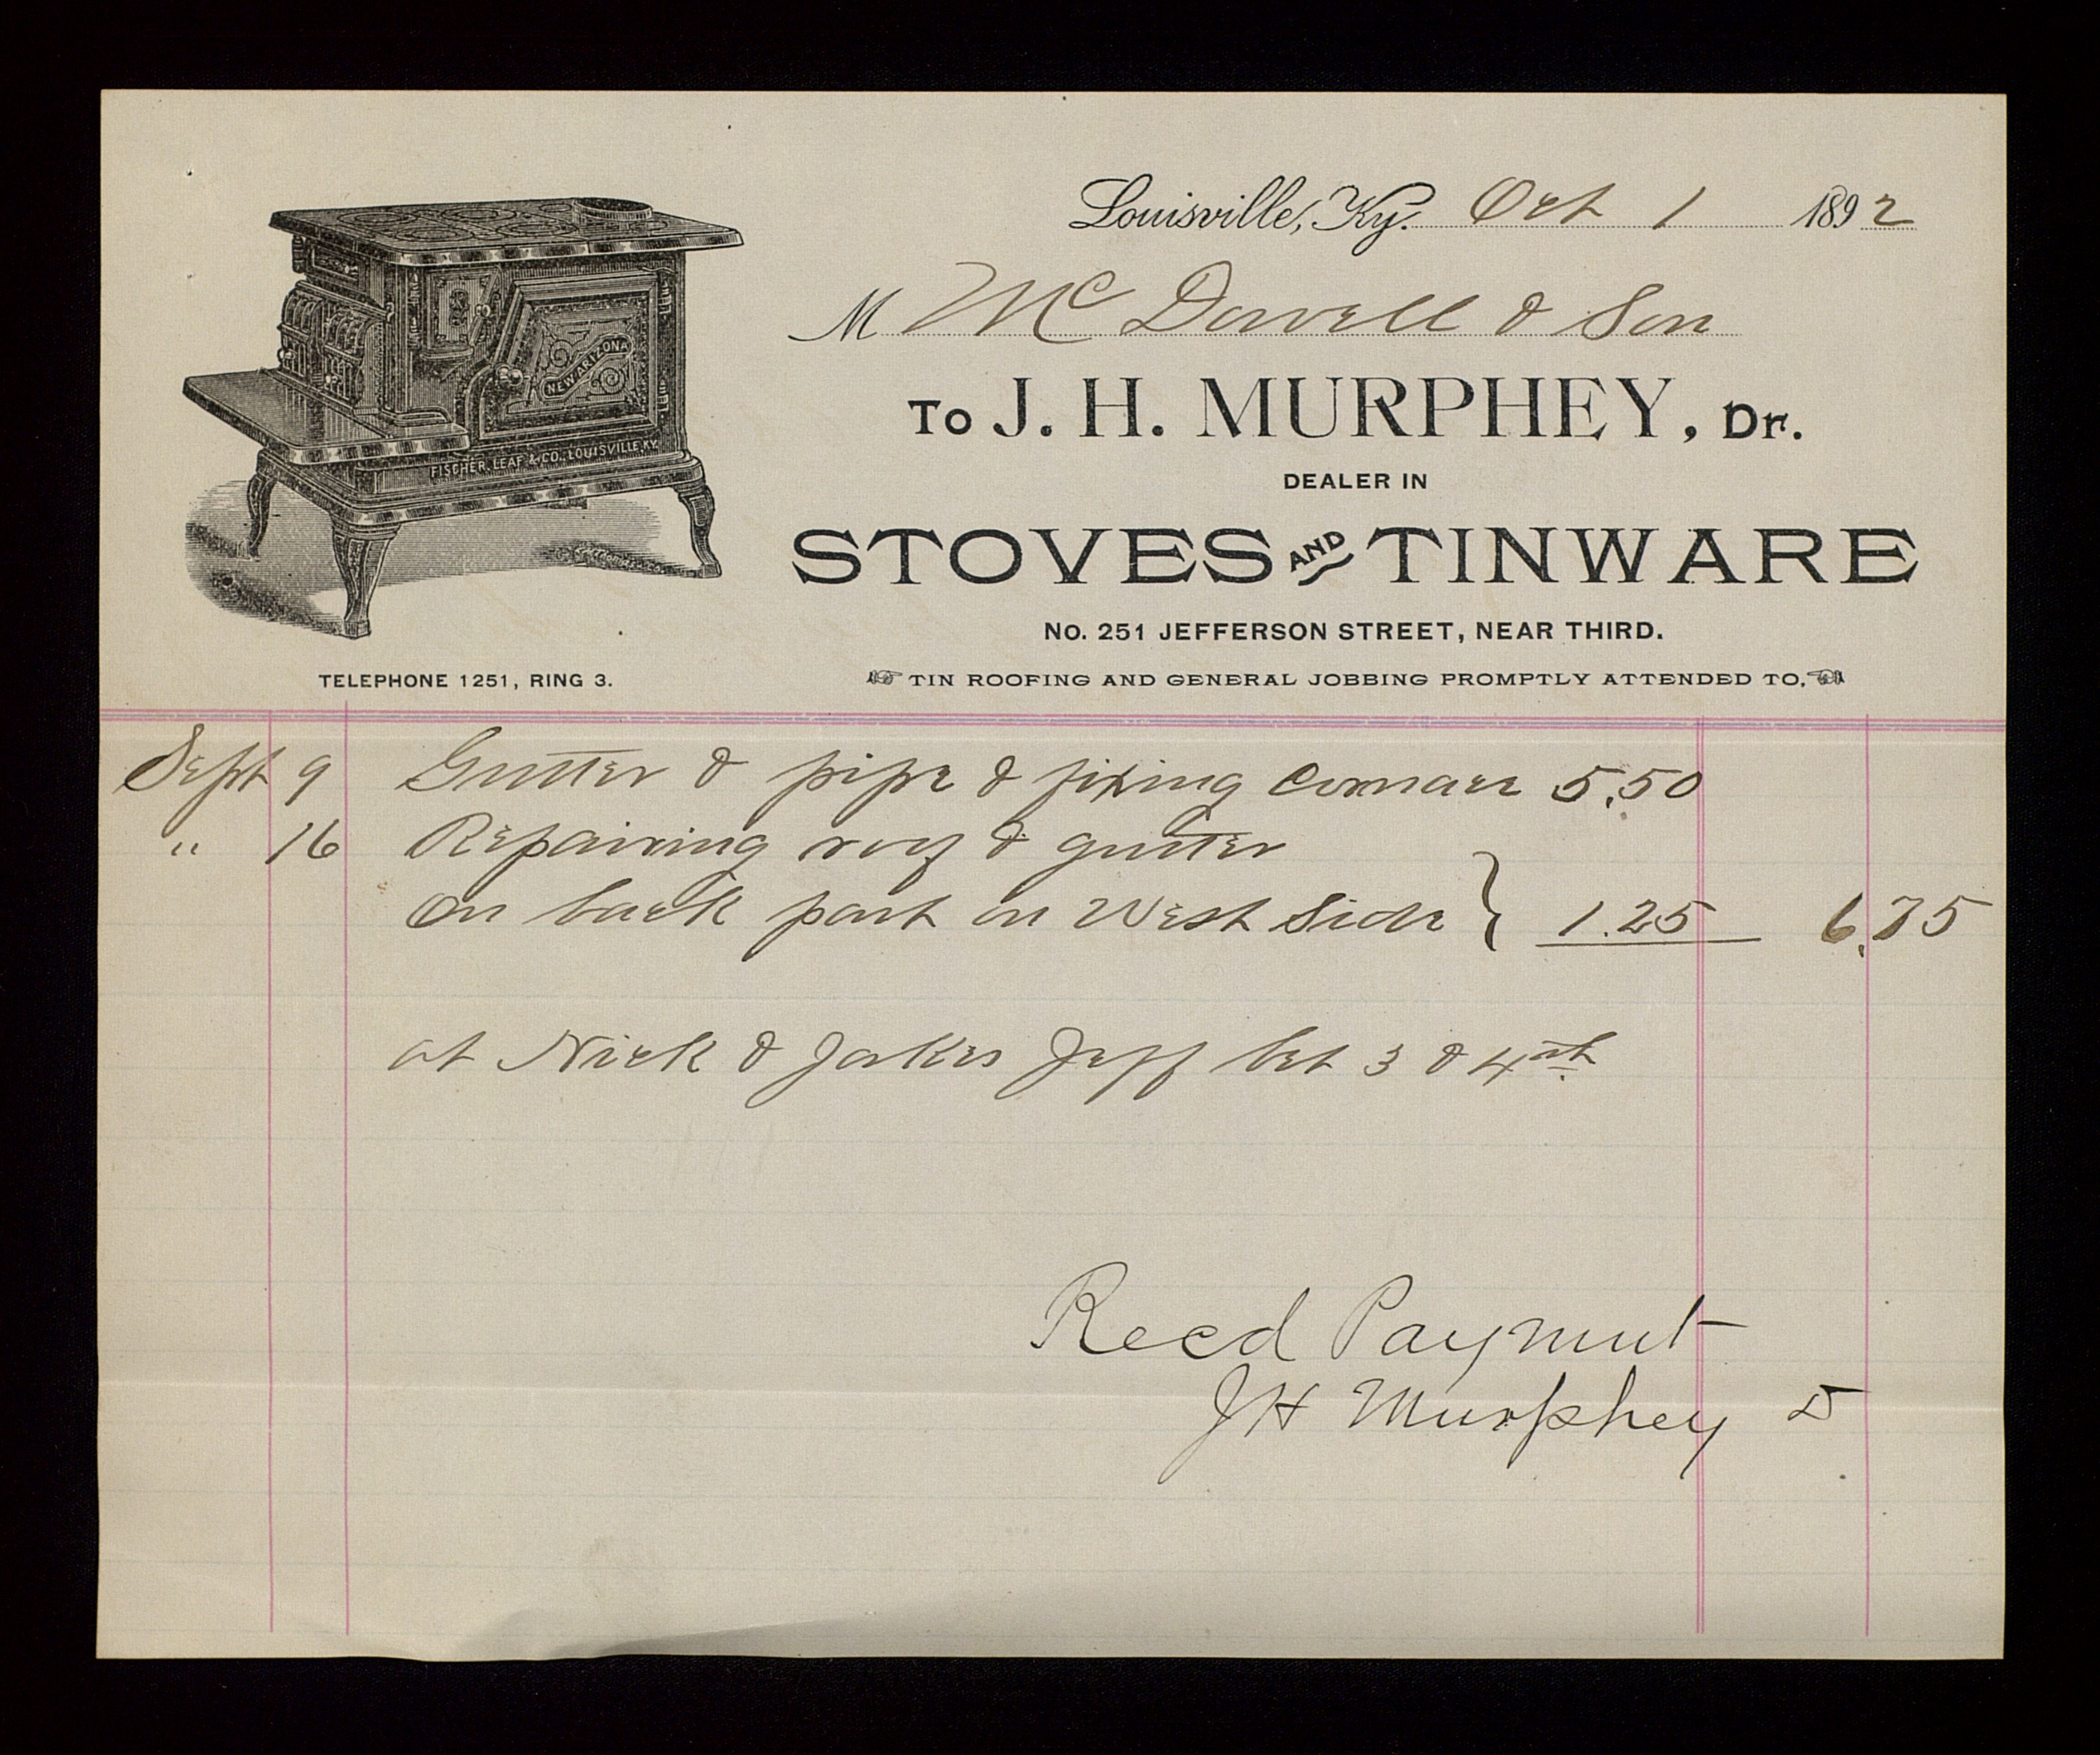 Louisville, Ky. Oct 1 1892
M Mc Dowell & Son
To J. H. MURPHEY, Dr.
DEALER IN
STOVES AND TINWARE
No. 251 JEFFERSON STREET, NEAR THIRD.
NEW ARIZONA
FISCHER, LEAF & CO. LOUISVILLE, KY.
TELEPHONE 1251, RING 3.
TIN ROOFING AND GENERAL JOBBING PROMPTLY ATTENDED TO.
Sept 9 Gutter & pipe & fixing 5.50
" 16 Repairing roof & gutter
on back part on West Side } 1.25 6.75
at Nick & Jakes Jeff bet 3 & 4th
Recd Payment
JH Murphey